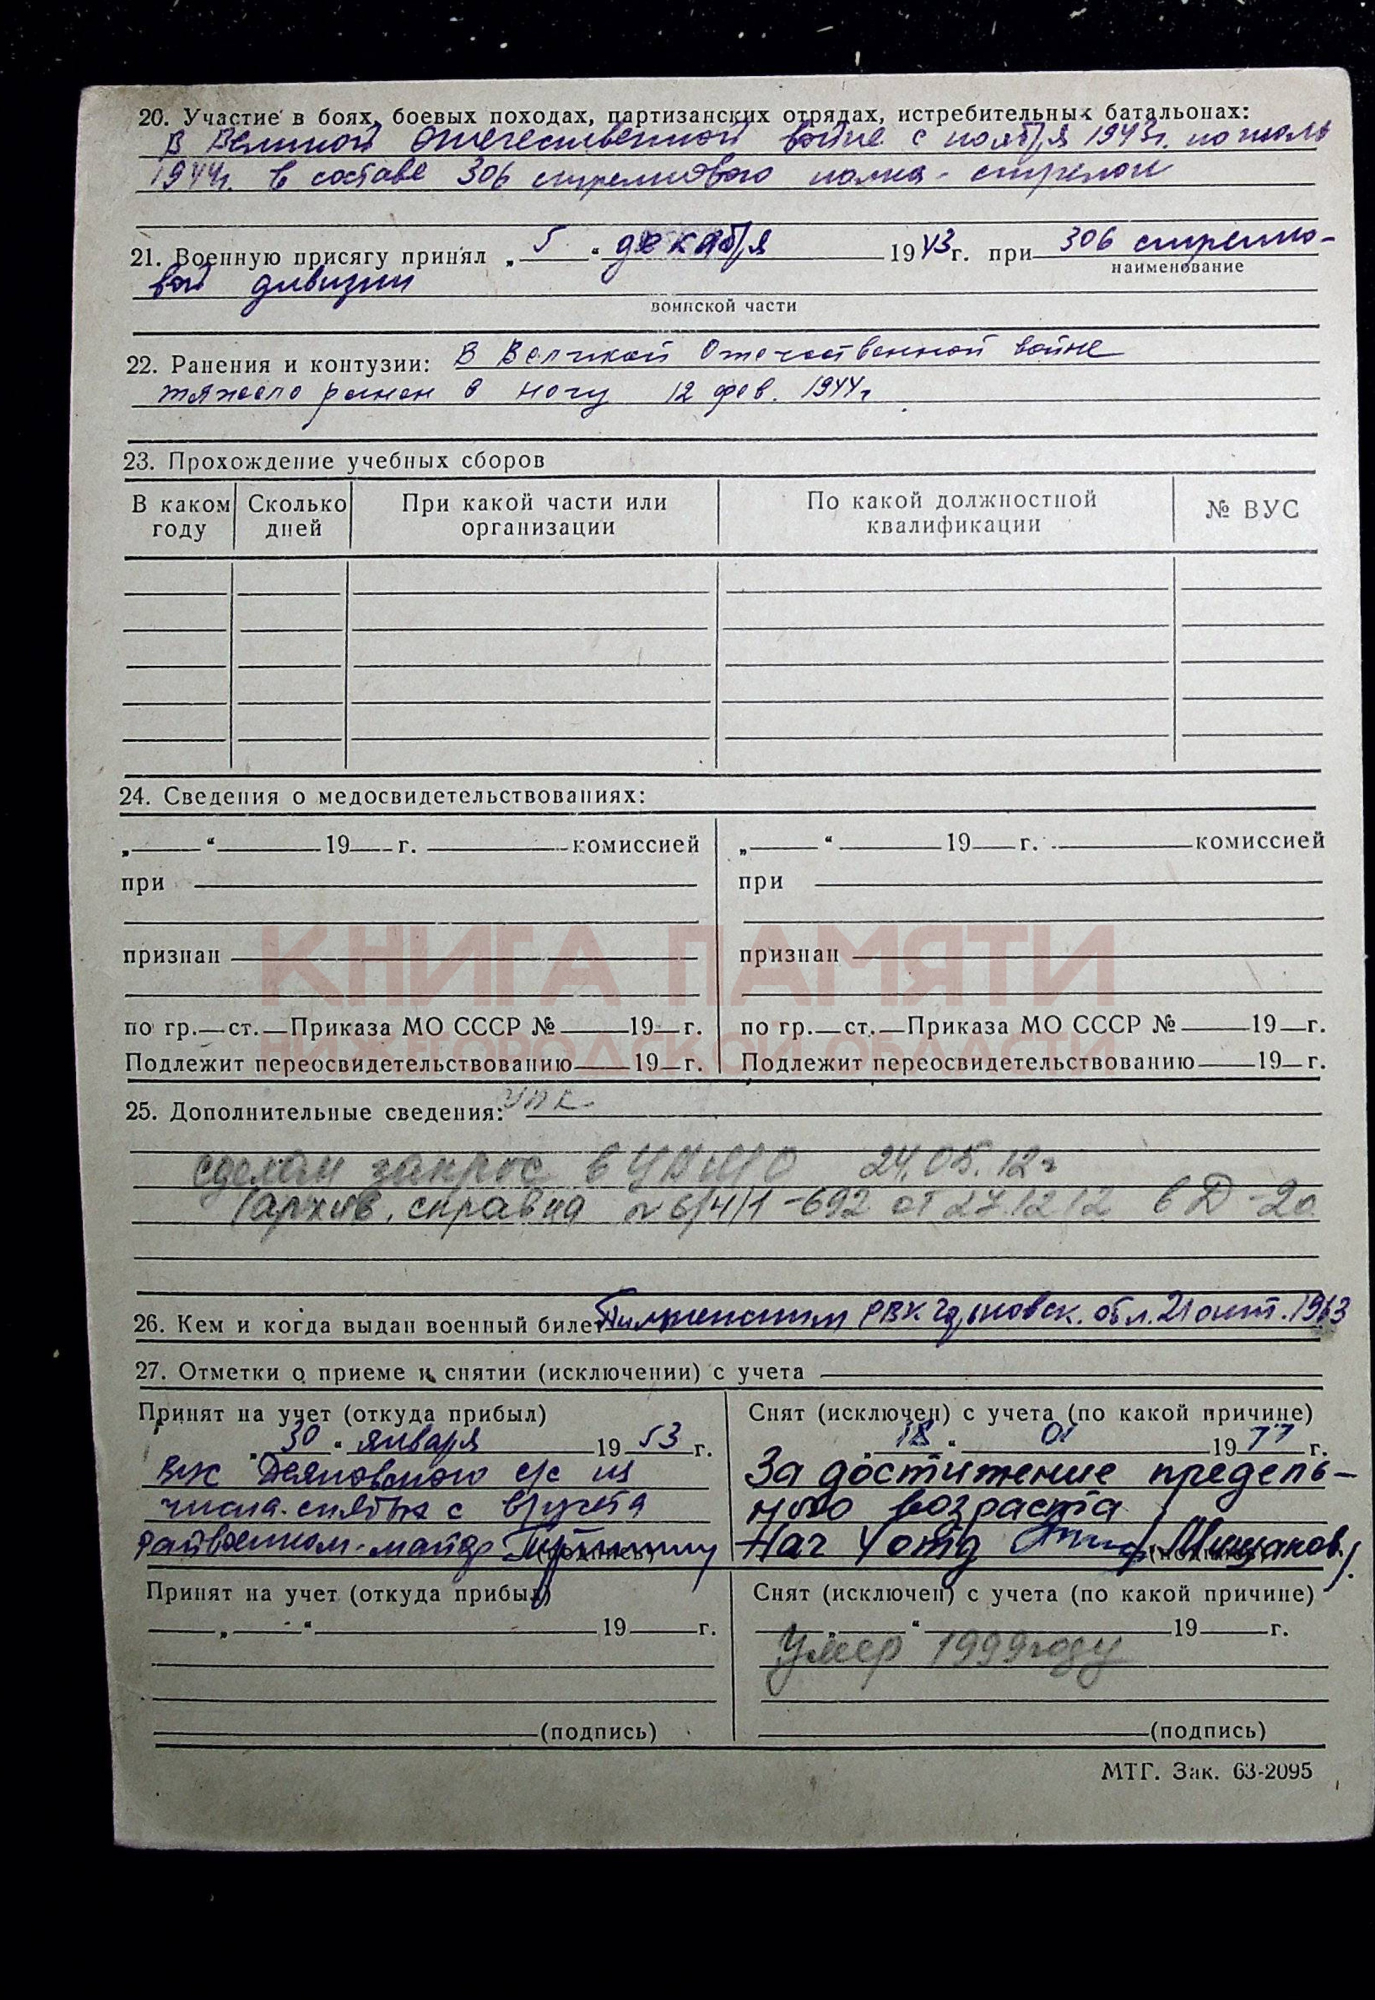 20. Участие в боях, боевых походах, партизанских отрядах, истребительных батальонах:
В Великой Отечественной войне с ноября 1943г. по июль
1944г. в составе 306 стрелкового полка - стрелок
21. Военную присягу принял „ 5 “ декабря 1943г. при 306 стрелко-
наименование
вой дивизии
воинской части
22. Ранения и контузии: В Великой Отечественной войне
тяжело ранен в ногу 12 фев. 1944г
23. Прохождение учебных сборов
В каком году Сколько дней При какой части или организации По какой должностной квалификации № ВУС
24. Сведения о медосвидетельствованиях:
„ “ 19 г. комиссией „ “ 19 г. комиссией
при при
КНИГА ПАМЯТИ
признан признан
по гр. ст. Приказа МО СССР № 19 г. по гр. ст. Приказа МО СССР № 19 г.
НИЖЕГОРОДСКОЙ ОБЛАСТИ
Подлежит переосвидетельствованию 19 г. Подлежит переосвидетельствованию 19 г.
25. Дополнительные сведения: УПК
сделан запрос в ЦАМО 24.05.12г
(архив. справка № 6/4/1-692 от 27.12.12 в Д-20
26. Кем и когда выдан военный билет РВК обл. 21 окт. 1963
27. Отметки о приеме и снятии (исключении) с учета
Принят на учет (откуда прибыл)
„ 30 “ января 19 53 г.
ВУС Деяновского с/с из
числа снятых с в/учета
Райвоенком - майор
(подпись)
Снят (исключен) с учета (по какой причине)
„ 18 “ 01 19 77 г.
За достижение предель-
ного возраста
Нач 4 отд /Мишанов/
(подпись)
Принят на учет (откуда прибыл)
„ “ 19 г.
(подпись)
Снят (исключен) с учета (по какой причине)
„ “ 19 г.
Умер 1999 году
(подпись)
МТГ. Зак. 63-2095